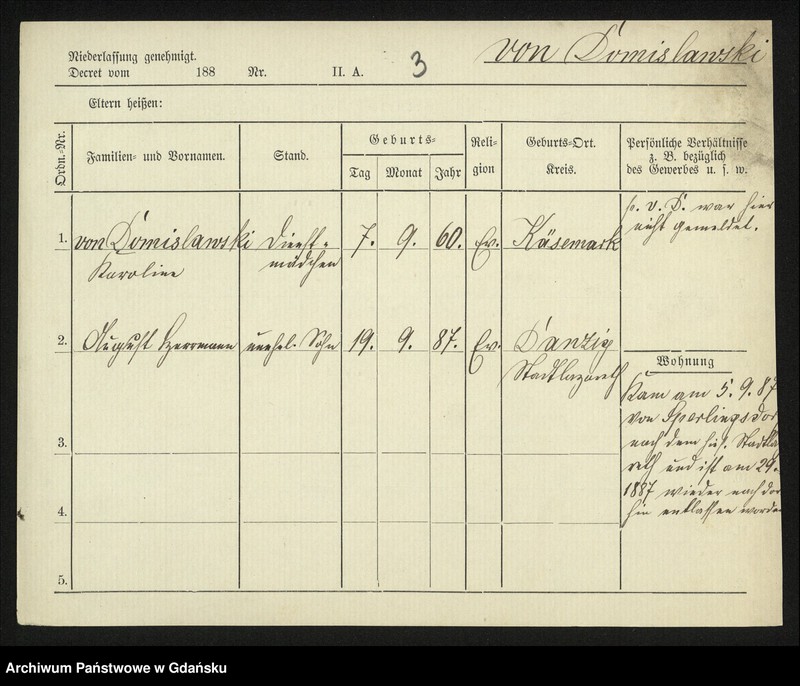 von Domislawski
Niederlassung genehmigt.
Decret vom 188 Nr. II. A. 3
Eltern heißen:
Ordn.-Nr. Familien- und Vornamen. Stand. Geburts- Tag Monat Jahr Religion Geburts-Ort. Kreis. Persönliche Verhältnisse
z. B. bezüglich
des Gewerbes u. s. w.
p. v. D. war hier
nicht gemeldet.
1. von Domislawski Dienst- 7. 9. 60. Ev. Käsemark
Karoline mädchen
2. August Herrmann unehel. Sohn 19. 9. 87. Ev. Danzig
Stadtlazareth
Wohnung
Kam am 5. 9. 87
von Sperlingsdor
nach dem hies. Stadtla
reth und ist am 29.
1887 wieder nach dor
hin entlassen worden
3.
4.
5.
Archiwum Państwowe w Gdańsku